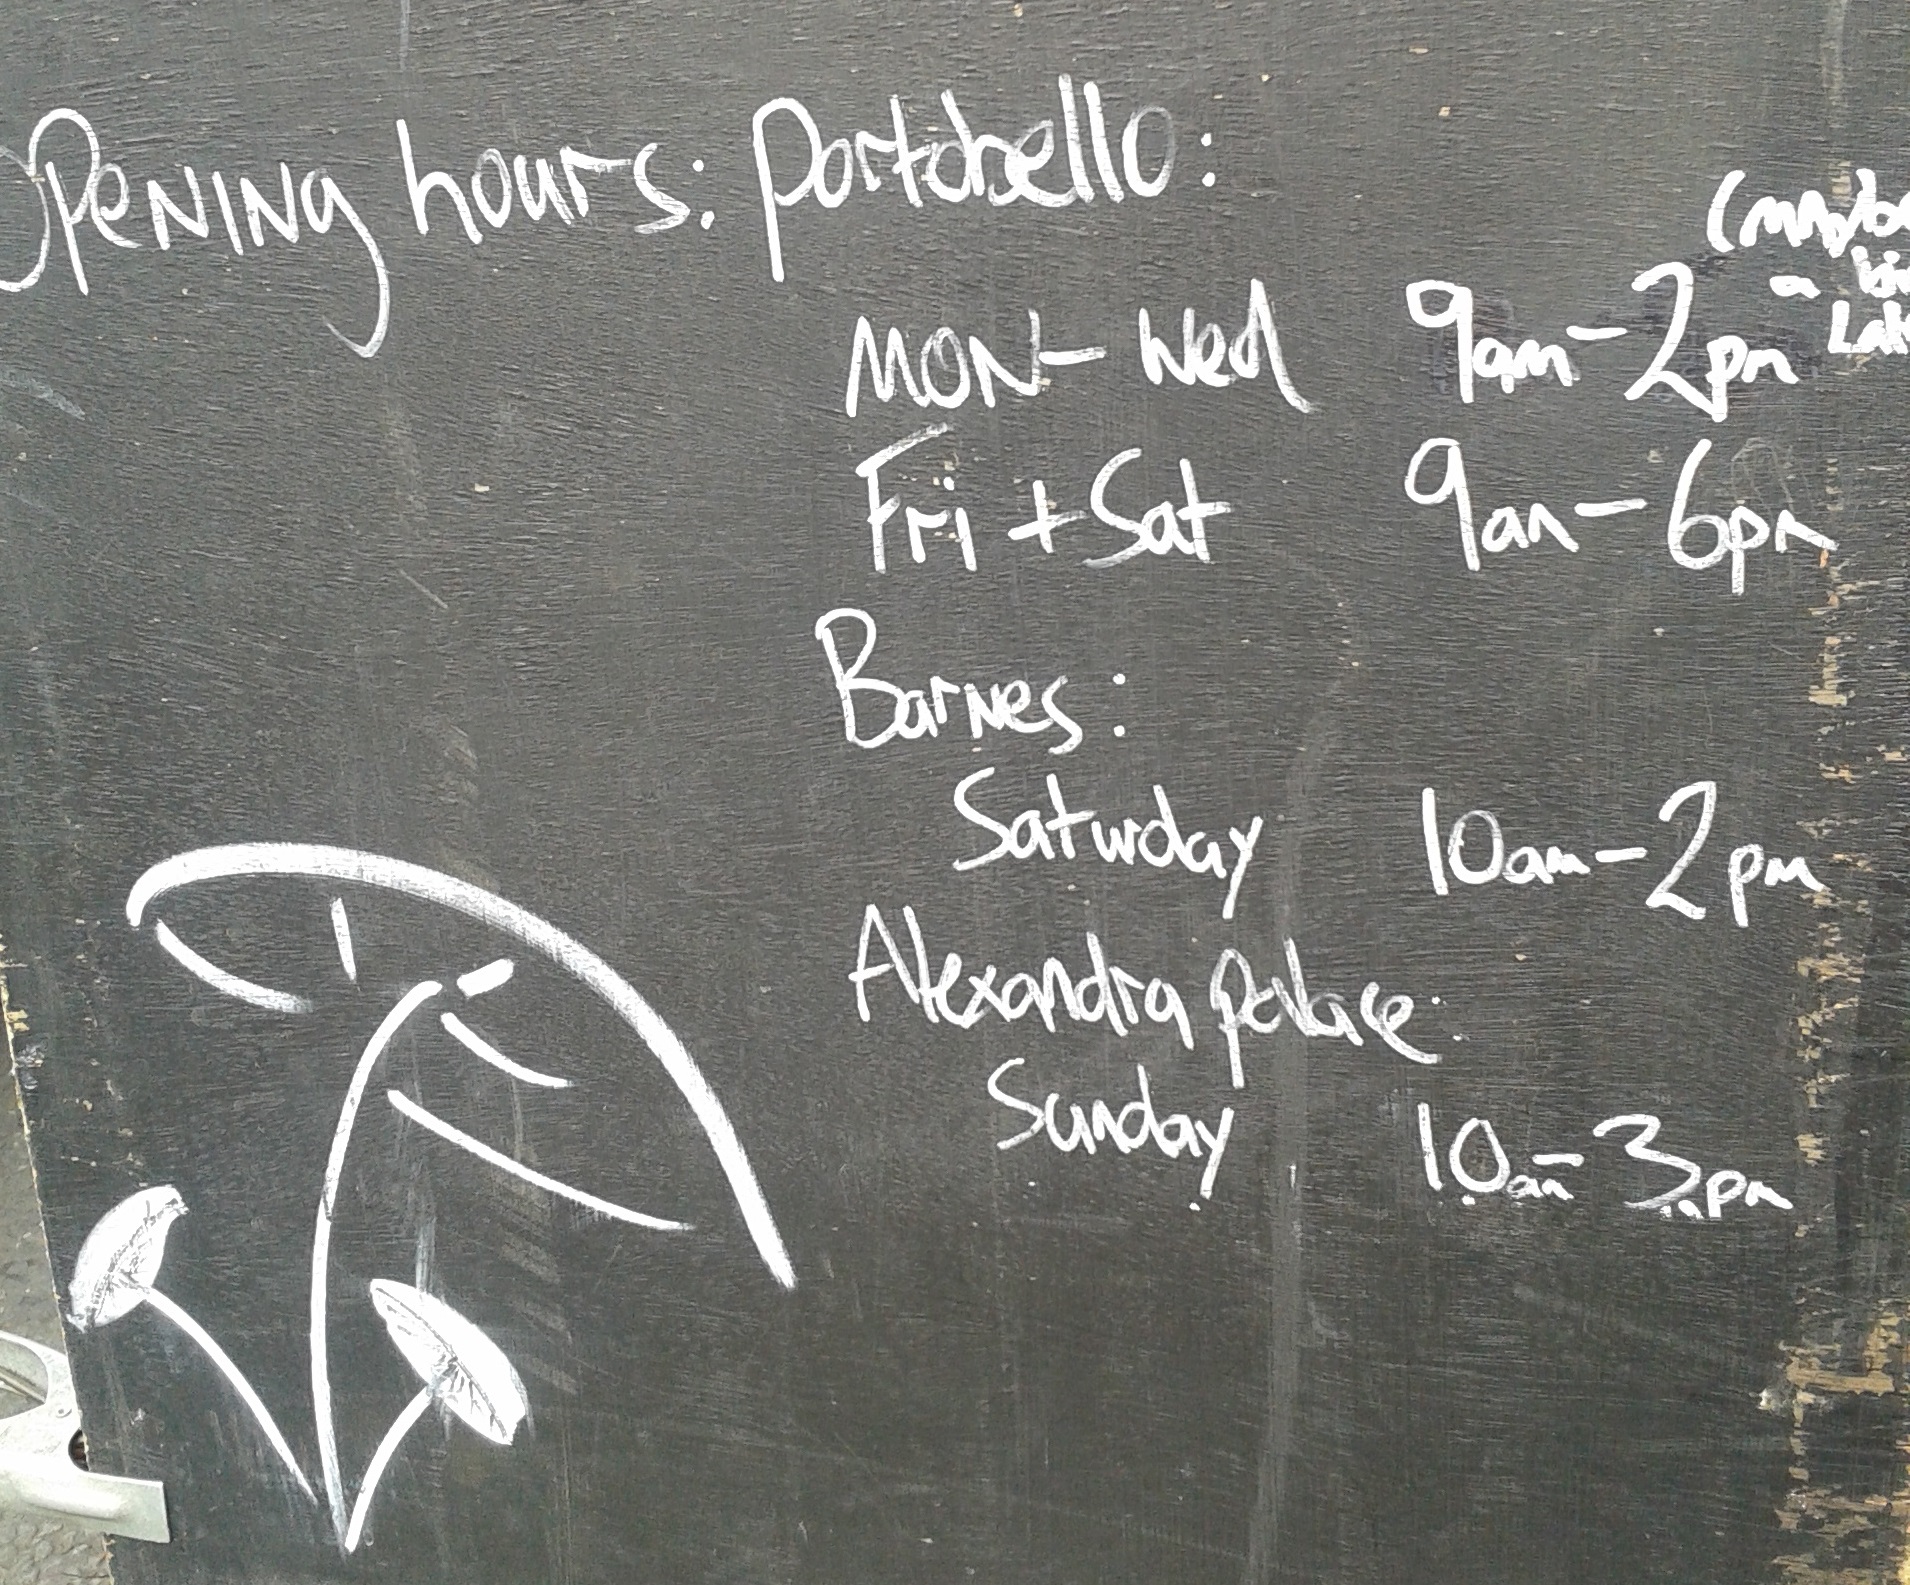 Opening hours: Portobello:
(maybe
a
MON - Wed 9am - 2pm
Fri + Sat 9am - 6pm
Barnes:
Saturday 10am - 2pm
Alexandra palace:
Sunday 10am - 3pm